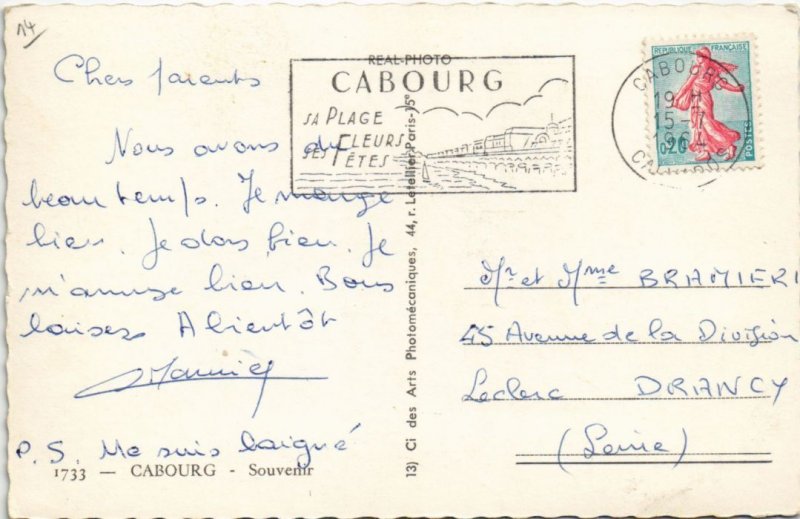 14
Chers parents
Nous avons du
beau temps. Je mange
bien. Je dors bien. Je
m'amuse bien. Bons
baisers A bientôt
P.S. Me suis baigné
1733 — CABOURG - Souvenir
REAL-PHOTO
CABOURG
SA PLAGE
SES FLEURS
SES FÊTES
13) Ci des Arts Photomécaniques, 44, r. Letellier-Paris-15e
REPUBLIQUE FRANÇAISE
0,20
POSTES
CABOURG
19 H
15-7
196
Mr et Mme BRAMIERI
45 Avenue de la Division
Leclerc DRANCY
(Seine)